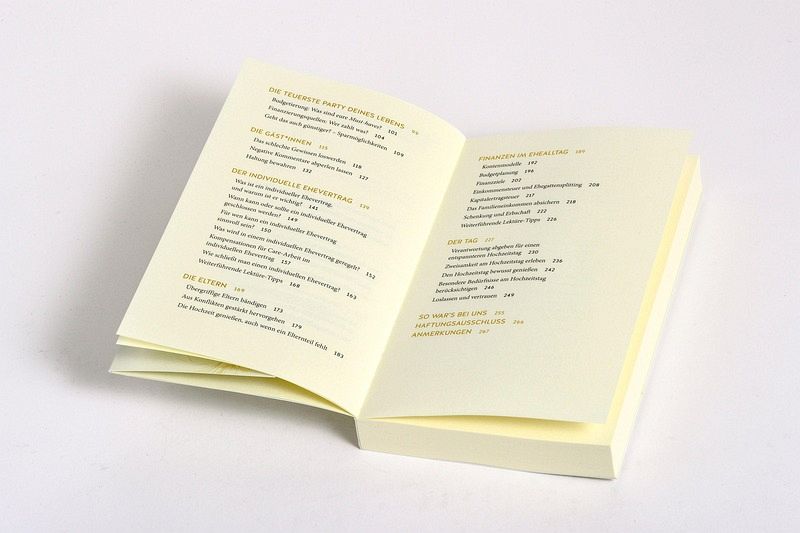 DIE TEUERSTE PARTY DEINES LEBENS 95
Budgetierung: Was sind eure Must-haves? 101
Finanzierungsquellen: Wer zahlt was? 104
Geht das auch günstiger? – Sparmöglichkeiten 109
DIE GÄST*INNEN 115
Das schlechte Gewissen loswerden 118
Negative Kommentare abperlen lassen 127
Haltung bewahren 132
DER INDIVIDUELLE EHEVERTRAG 139
Was ist ein individueller Ehevertrag,
und warum ist er wichtig? 141
Wann kann oder sollte ein individueller Ehevertrag
geschlossen werden? 149
Für wen kann ein individueller Ehevertrag
sinnvoll sein? 150
Was wird in einem individuellen Ehevertrag geregelt? 152
Kompensationen für Care-Arbeit im
individuellen Ehevertrag 157
Wie schließt man einen individuellen Ehevertrag? 163
Weiterführende Lektüre-Tipps 168
DIE ELTERN 169
Übergriffige Eltern bändigen 173
Aus Konflikten gestärkt hervorgehen 179
Die Hochzeit genießen, auch wenn ein Elternteil fehlt 183
FINANZEN IM EHEALLTAG 189
Kontenmodelle 192
Budgetplanung 196
Finanzziele 202
Einkommensteuer und Ehegattensplitting 208
Kapitalertragsteuer 217
Das Familieneinkommen absichern 218
Schenkung und Erbschaft 222
Weiterführende Lektüre-Tipps 226
DER TAG 227
Verantwortung abgeben für einen
entspannteren Hochzeitstag 230
Zweisamkeit am Hochzeitstag erleben 236
Den Hochzeitstag bewusst genießen 242
Besondere Bedürfnisse am Hochzeitstag
berücksichtigen 246
Loslassen und vertrauen 249
SO WAR'S BEI UNS 255
HAFTUNGSAUSSCHLUSS 266
ANMERKUNGEN 267